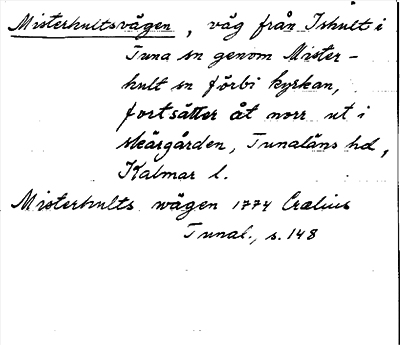 Misterhultsvägen, väg från Ishult i
Tuna sn genom Mister-
hult sn förbi kyrkan,
fortsätter åt norr ut i
skärgården, Tunaläns hd,
Kalmar l.
Misterhults wägen 1774 Crælius
Tunal., s. 148